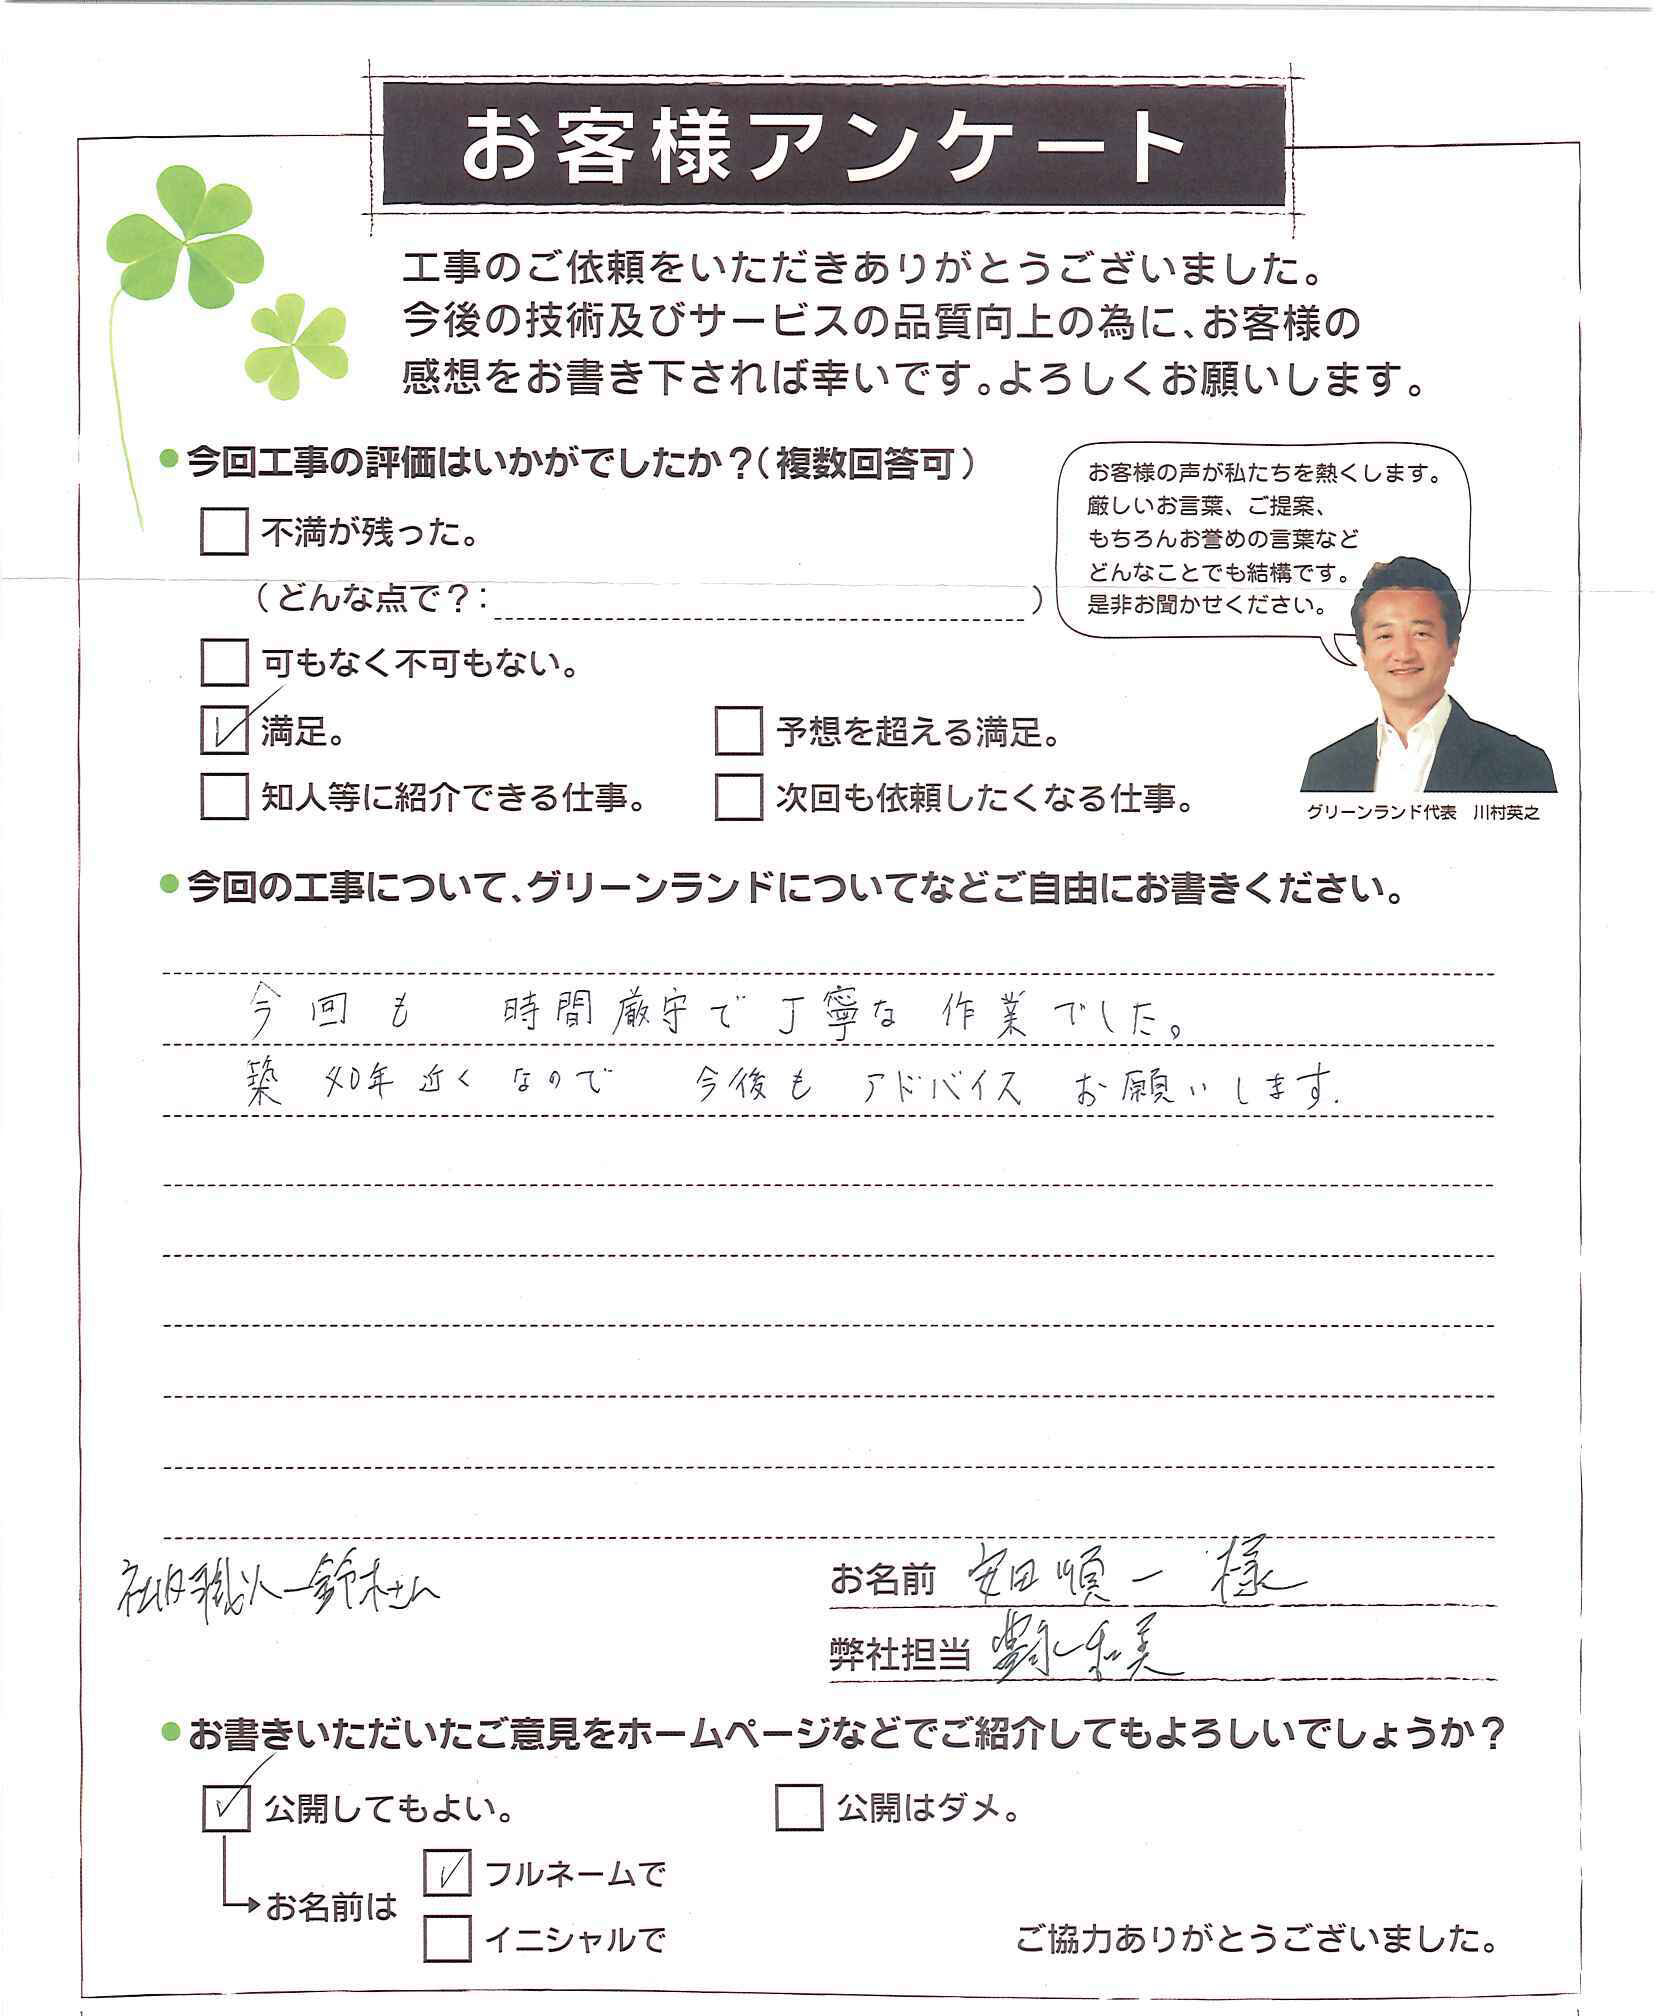 お客様アンケート
工事のご依頼をいただきありがとうございました。
今後の技術及びサービスの品質向上の為に、お客様の
感想をお書き下されば幸いです。よろしくお願いします。
今回工事の評価はいかがでしたか？（複数回答可）
お客様の声が私たちを熱くします。
厳しいお言葉、ご提案、
もちろんお誉めの言葉など
どんなことでも結構です。
是非お聞かせください。
不満が残った。
（どんな点で？：　）
可もなく不可もない。
満足。
予想を超える満足。
知人等に紹介できる仕事。
次回も依頼したくなる仕事。
グリーンランド代表　川村英之
今回の工事について、グリーンランドについてなどご自由にお書きください。
今回も 時間厳守で丁寧な作業でした。
築40年近くなので 今後もアドバイスお願いします.
社内職人ー鈴木さん
お名前 安田順一様
弊社担当
お書きいただいたご意見をホームページなどでご紹介してもよろしいでしょうか？
公開してもよい。
公開はダメ。
お名前は
フルネームで
イニシャルで
ご協力ありがとうございました。